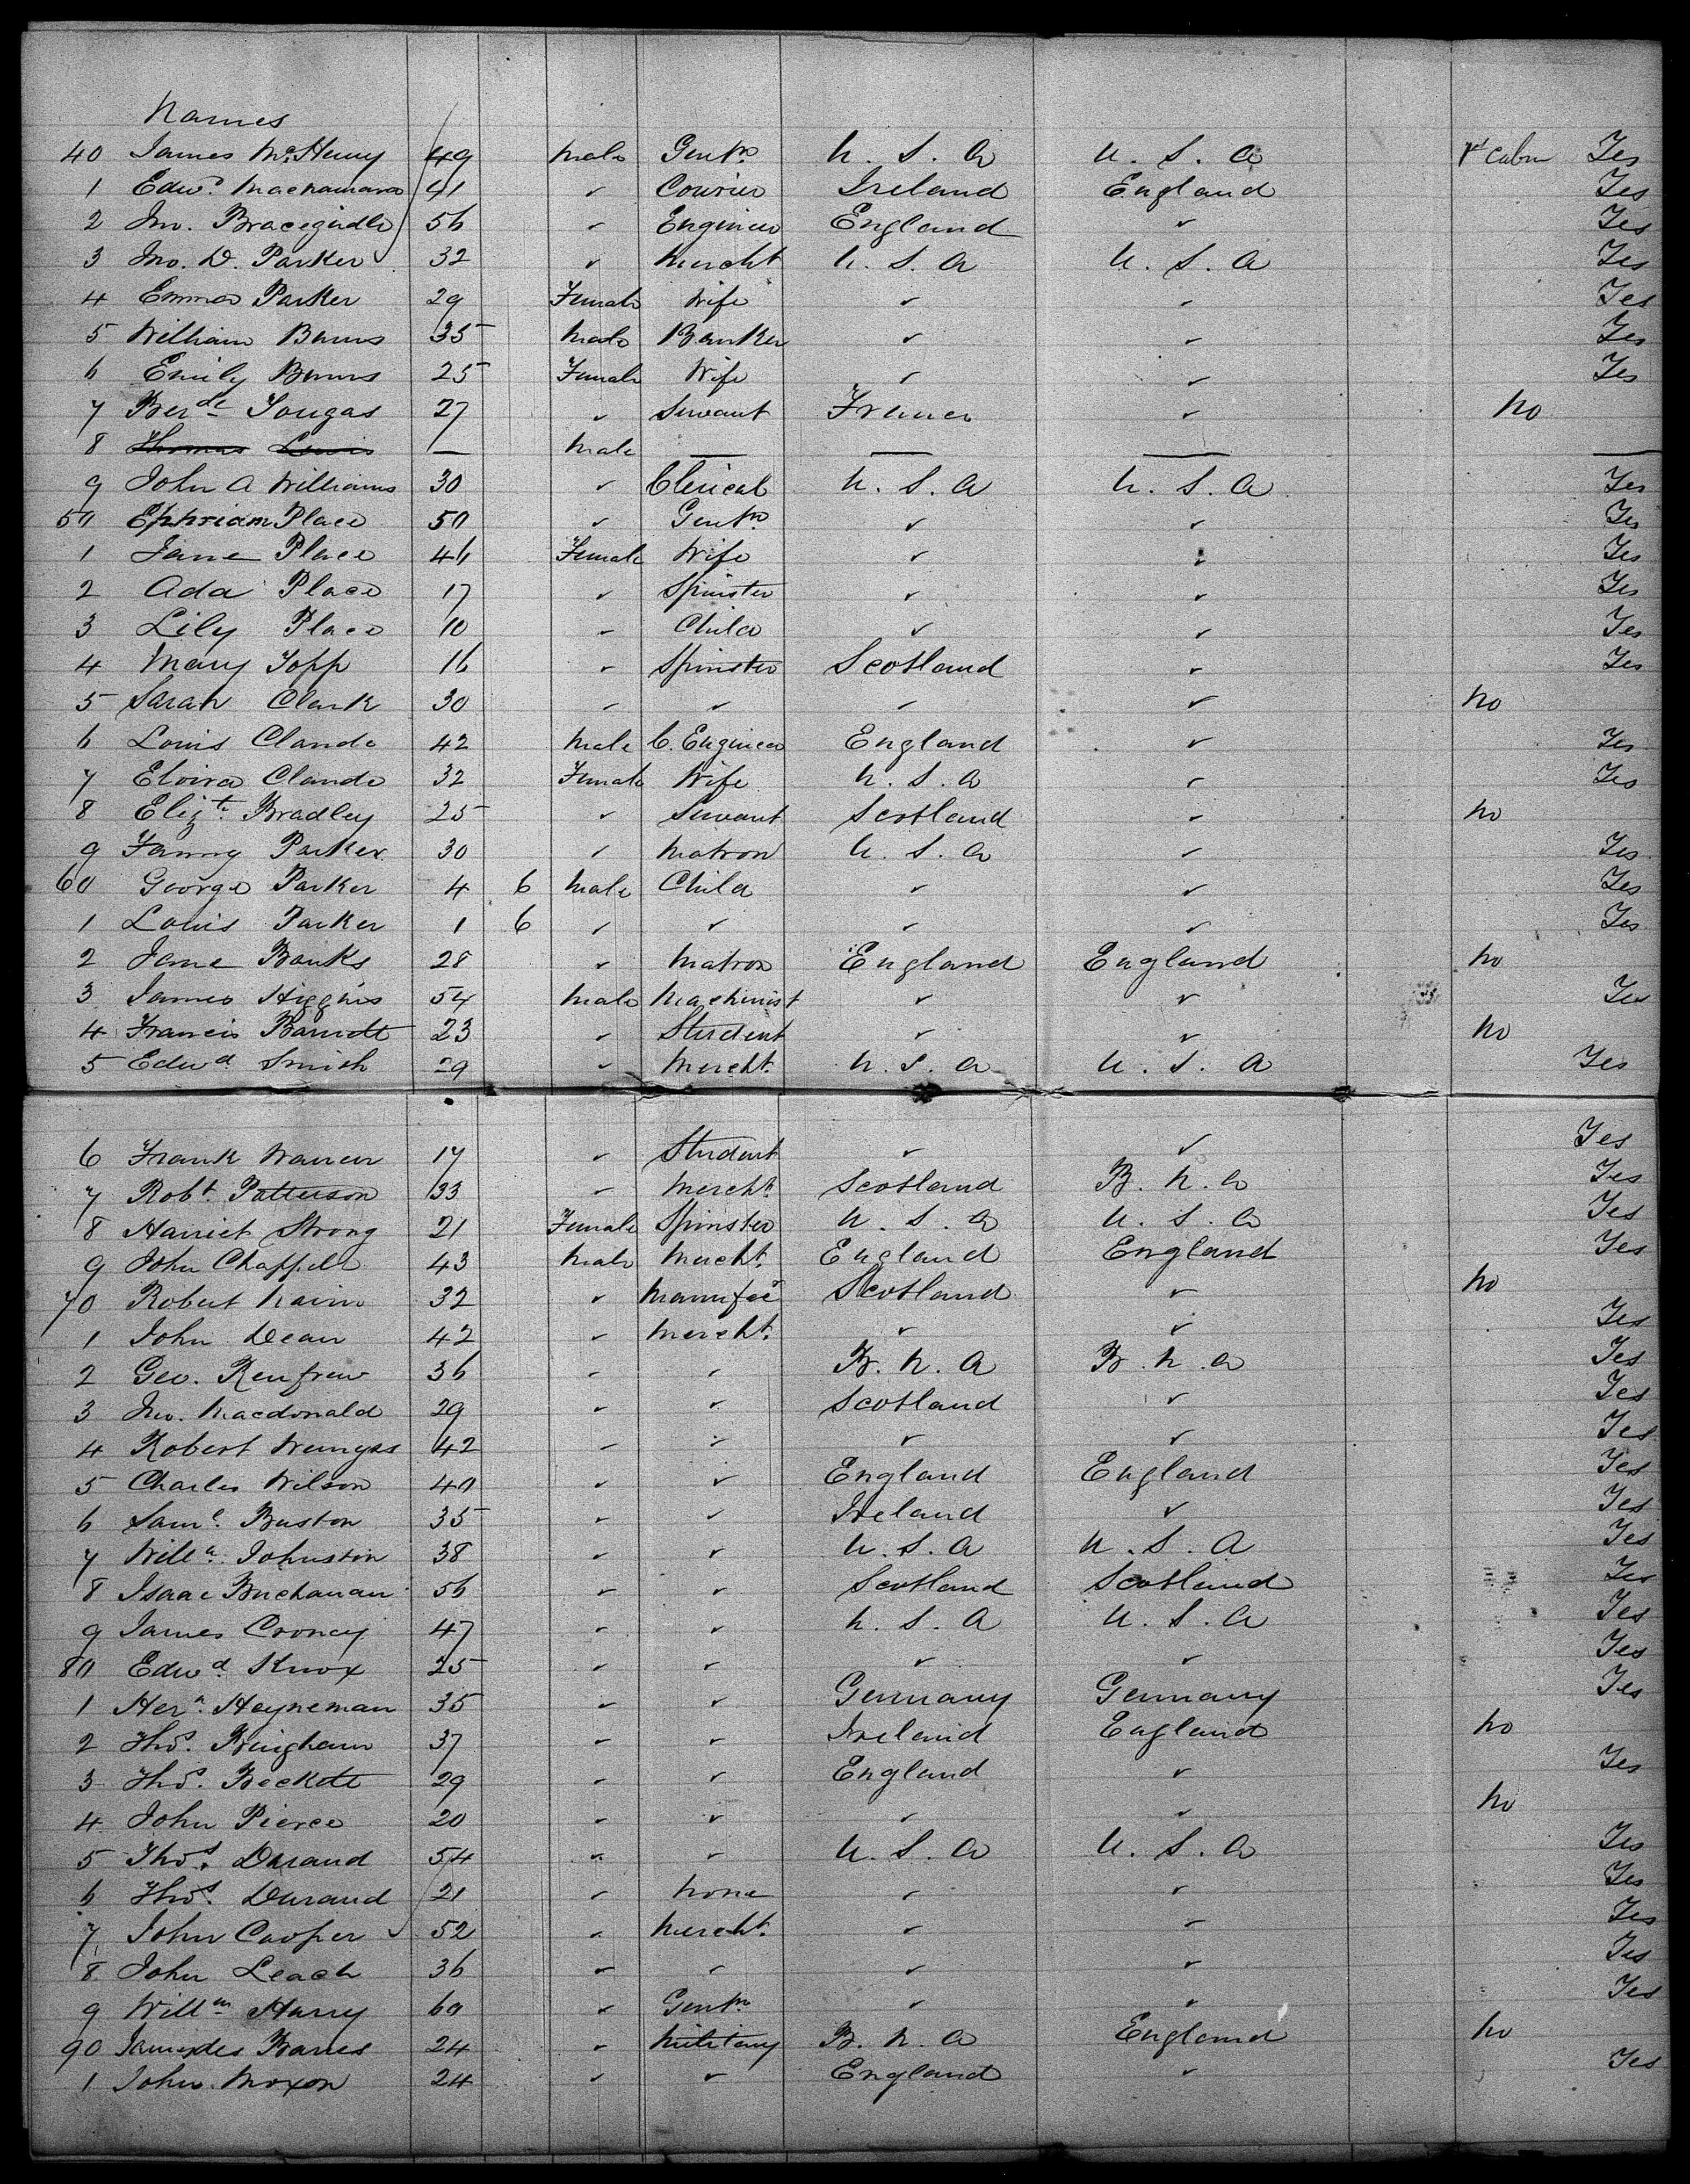 Names
40 James McHenry 49 Male Gentn U. S. A U. S. A 1st Cabin Yes
1 Edwd Macnamara 41 ✓ Courier Ireland England Yes
2 Jno. Bracegirdle 56 ✓ Engineer England ✓ Yes
3 Jno. D. Parker 32 ✓ Mercht U. S. A U. S. A Yes
4 Emma Parker 29 Female Wife ✓ ✓ Yes
5 William Burns 35 Male Banker ✓ ✓ Yes
6 Emily Burns 25 Female Wife ✓ ✓ Yes
7 Berde Tougas 27 ✓ Servant France ✓ No
8 Thomas Lewis — Male — — — —
9 John A Williams 30 ✓ Clerical U. S. A U. S. A Yes
50 Ephriam Place 50 ✓ Gentn ✓ ✓ Yes
1 Jane Place 46 Female Wife ✓ ✓ Yes
2 Ada Place 17 ✓ Spinster ✓ ✓ Yes
3 Lily Place 10 ✓ Child ✓ ✓ Yes
4 Mary Topp 16 ✓ Spinster Scotland ✓ Yes
5 Sarah Clark 30 ✓ ✓ ✓ ✓ No
6 Louis Clande 42 Male C. Engineer England ✓ Yes
7 Elvira Clande 32 Female Wife U. S. A ✓ Yes
8 Elizth Bradley 25 ✓ Servant Scotland ✓ No
9 Fanny Parker 30 ✓ Matron U. S. A ✓ Yes
60 George Parker 4 6 Male Child ✓ ✓ Yes
1 Louis Parker 1 6 ✓ ✓ ✓ ✓ Yes
2 Jane Banks 28 ✓ Matron England England No
3 James Higgins 54 Male Machinist ✓ ✓ Yes
4 Francis 23 ✓ Student ✓ ✓ No
5 Edwd Smith 29 ✓ Mercht. U. S. A U. S. A Yes
6 Frank Warren 17 ✓ Student ✓ ✓ Yes
7 Robt. Patterson 33 ✓ Mercht. Scotland B. N. A Yes
8 Harriet Strong 21 Female Spinster U. S. A U. S. A Yes
9 John Chappell 43 Male Mercht. England England Yes
70 Robert Nairn 32 ✓ Manufac Scotland ✓ No
1 John Dean 42 ✓ Mercht. ✓ ✓ Yes
2 Geo. Renfrew 36 ✓ ✓ B. N. A B. N. A Yes
3 Jno. Macdonald 29 ✓ ✓ Scotland ✓ Yes
4 Robert Wemyss 42 ✓ ✓ ✓ ✓ Yes
5 Charles Wilson 40 ✓ ✓ England England Yes
6 Saml. Buston 35 ✓ ✓ Ireland ✓ Yes
7 Willm. Johnston 38 ✓ ✓ U. S. A U. S. A Yes
8 Isaac Buchanan 56 ✓ ✓ Scotland Scotland Yes
9 James Croney 47 ✓ ✓ U. S. A U. S. A Yes
80 Edwd. Knox 25 ✓ ✓ ✓ ✓ Yes
1 Hern. Heyneman 35 ✓ ✓ Germany Germany Yes
2 Thos. Bingham 37 ✓ ✓ Ireland England No
3 Thos. Beckett 29 ✓ ✓ England ✓ Yes
4 John Pierce 20 ✓ ✓ ✓ ✓ No
5 Thos. Durand 54 ✓ ✓ U. S. A U. S. A Yes
6 Thos. Durand 21 ✓ None ✓ ✓ Yes
7 John Cooper 52 ✓ Mercht. ✓ ✓ Yes
8 John Leach 36 ✓ ✓ ✓ ✓ Yes
9 Willm Harry 60 ✓ Gentn ✓ ✓ Yes
90 24 ✓ Military B. N. A England No
1 John Moxon 24 ✓ ✓ England ✓ Yes